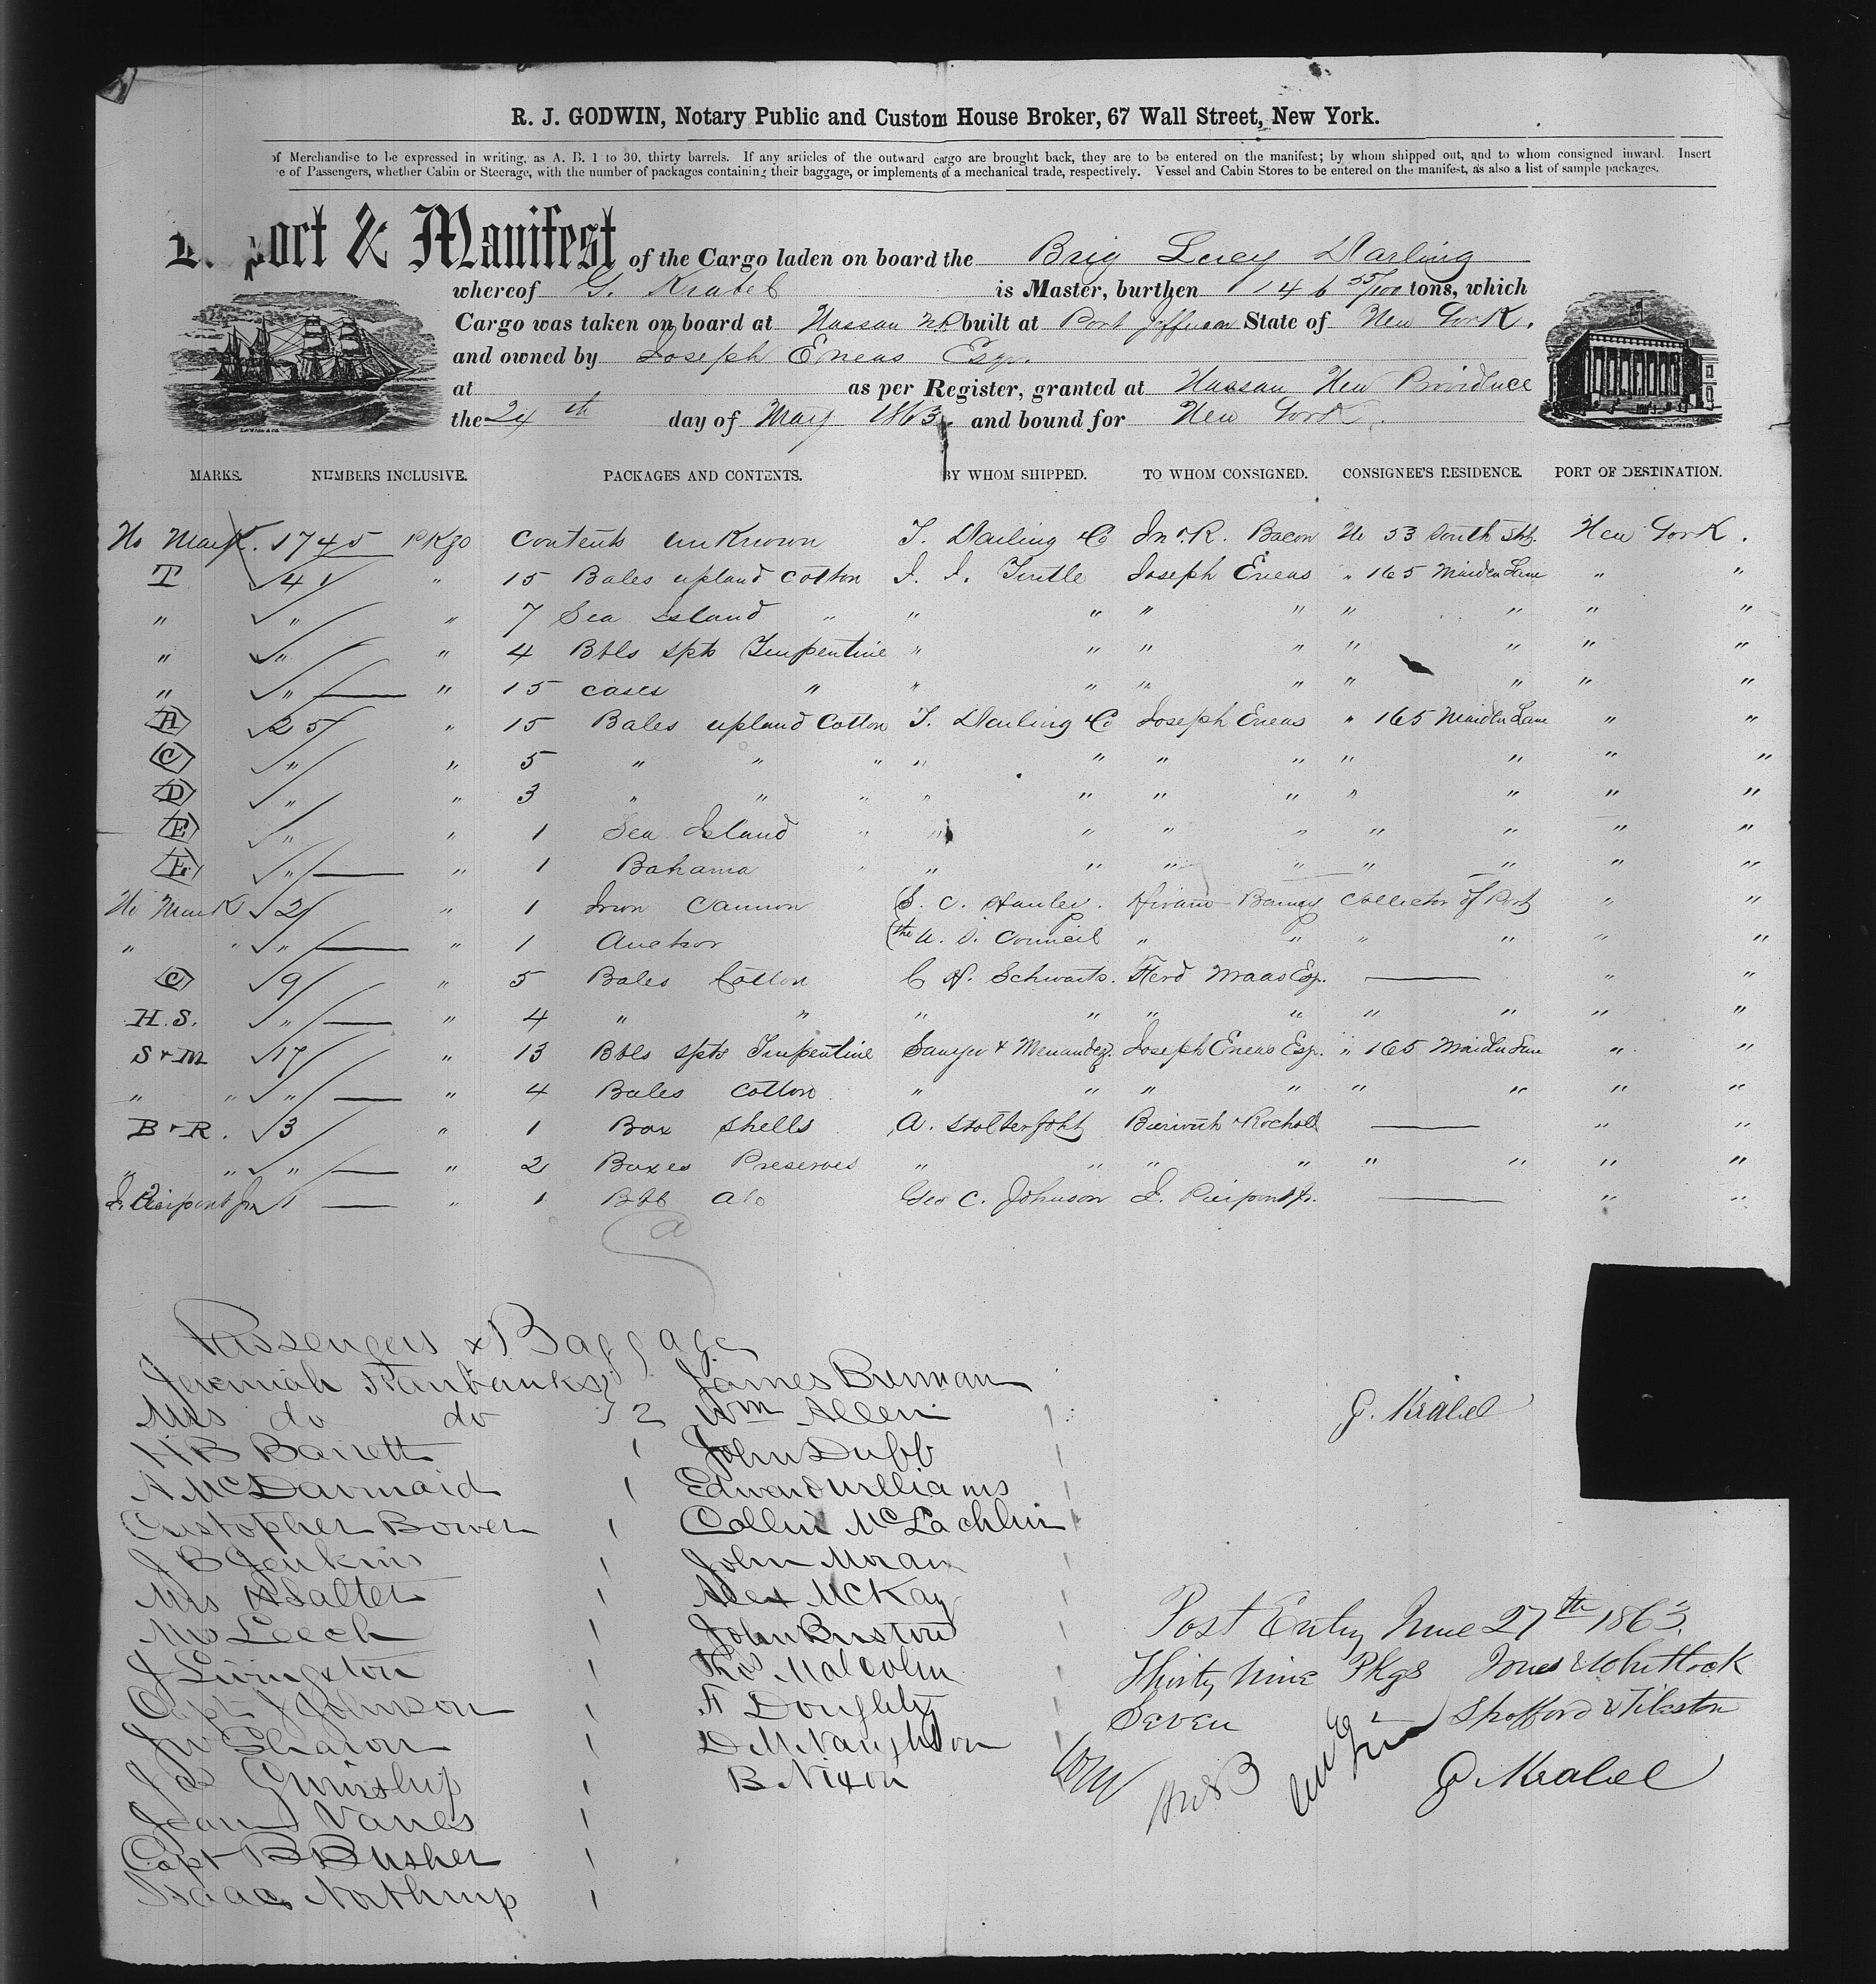 R. J. GODWIN, Notary Public and Custom House Broker, 67 Wall Street, New York.
of Merchandise to be expressed in writing, as A. B. 1 to 30, thirty barrels. If any articles of the outward cargo are brought back, they are to be entered on the manifest; by whom shipped out, and to whom consigned inward. Insert
e of Passengers, whether Cabin or Steerage, with the number of packages containing their baggage, or implements of a mechanical trade, respectively. Vessel and Cabin Stores to be entered on the manifest, as also a list of sample packages.
ort & Manifest of the Cargo laden on board the Brig Lucy Darling
whereof G. Krabel is Master, burthen 146 55/100 tons, which
Cargo was taken on board at Nassau N.P. built at Port Jefferson State of New York.
and owned by Joseph Eneas Esqr.
at as per Register, granted at Nassau New Providence
the 24th day of May 1863. and bound for New York.
MARKS. NUMBERS INCLUSIVE. PACKAGES AND CONTENTS. BY WHOM SHIPPED. TO WHOM CONSIGNED. CONSIGNEE'S RESIDENCE. PORT OF DESTINATION.
No Mark. 1745 Pkgs Contents unknown T. Darling & Co Jn. R. Bacon No 53 South Stt. New York.
T 41 " 15 Bales upland Cotton J. J. Turtle Joseph Eneas " 165 Maiden Lane " "
" " " 7 Sea Island " " " " " " " " "
" " " 4 Bbls spts Turpentine " " " " " " " "
" " " 15 cases " " " " " " " " "
A 25 " 15 Bales upland Cotton T. Darling & Co Joseph Eneas " 165 Maiden Lane " "
C " " 5 " " " " " " " " " " "
D " " 3 " " " " " " " " " " "
E " " 1 Sea Island " " " " " " " " "
E " " 1 Bahama " " " " " " " " "
No Mark 2 " 1 Iron Cannon S. C. Hawley. Hiram Barney Collector of Port " "
" " " " 1 Anchor the U. S. Council " " " " " "
C 9 " 5 Bales Cotton C. H. Schwarts. Ferd Maas Esq. " "
H. S. " " 4 " " " " " " " " " "
S & M 17 " 13 Bbls spts Turpentine Sawyer & Menandez. Joseph Eneas Esq. " 165 Maiden Lane " "
" " " " 4 Bales Cotton " " " " " " " "
B & R. 3 " 1 Box Shells A. Stolterfoht Bierwith & Rocholl " "
" " " " 2 Boxes Preserves " " " " " " " "
J. Pierpont Jr 1 " 1 Bbl Geo C. Johnson J. Pierpont Jr. " "
Passengers & Baggage
Jeremiah Fairbanks James Burman
Mrs do do 2 Wm Allen 1
H B Barrett 1 John Dubb 1
A McDarmaid 1 Edward Williams 1
Cristopher Bower 1 Collin McLachlin 1
J B Jenkins 1 John Moran 1
Mrs A Salter 1 Alex McKay 1
Mrs Leech 1 John Burston 1
J Livingston 1 Thos Malcolm 1
Capt J Johnson 1 F Doughty 1
Jn Sharon 1 D McNaughton 1
Jas Gwinslip 1 B Nixon
Jean Vanes 1
Capt B Busher 1
Isaac Northrup 1
G. Krabel
Post Entry June 27th 1863.
Thirty Nine Pkgs Jones & Whitlock
Seven Spofford & Tileston
G. Krabel